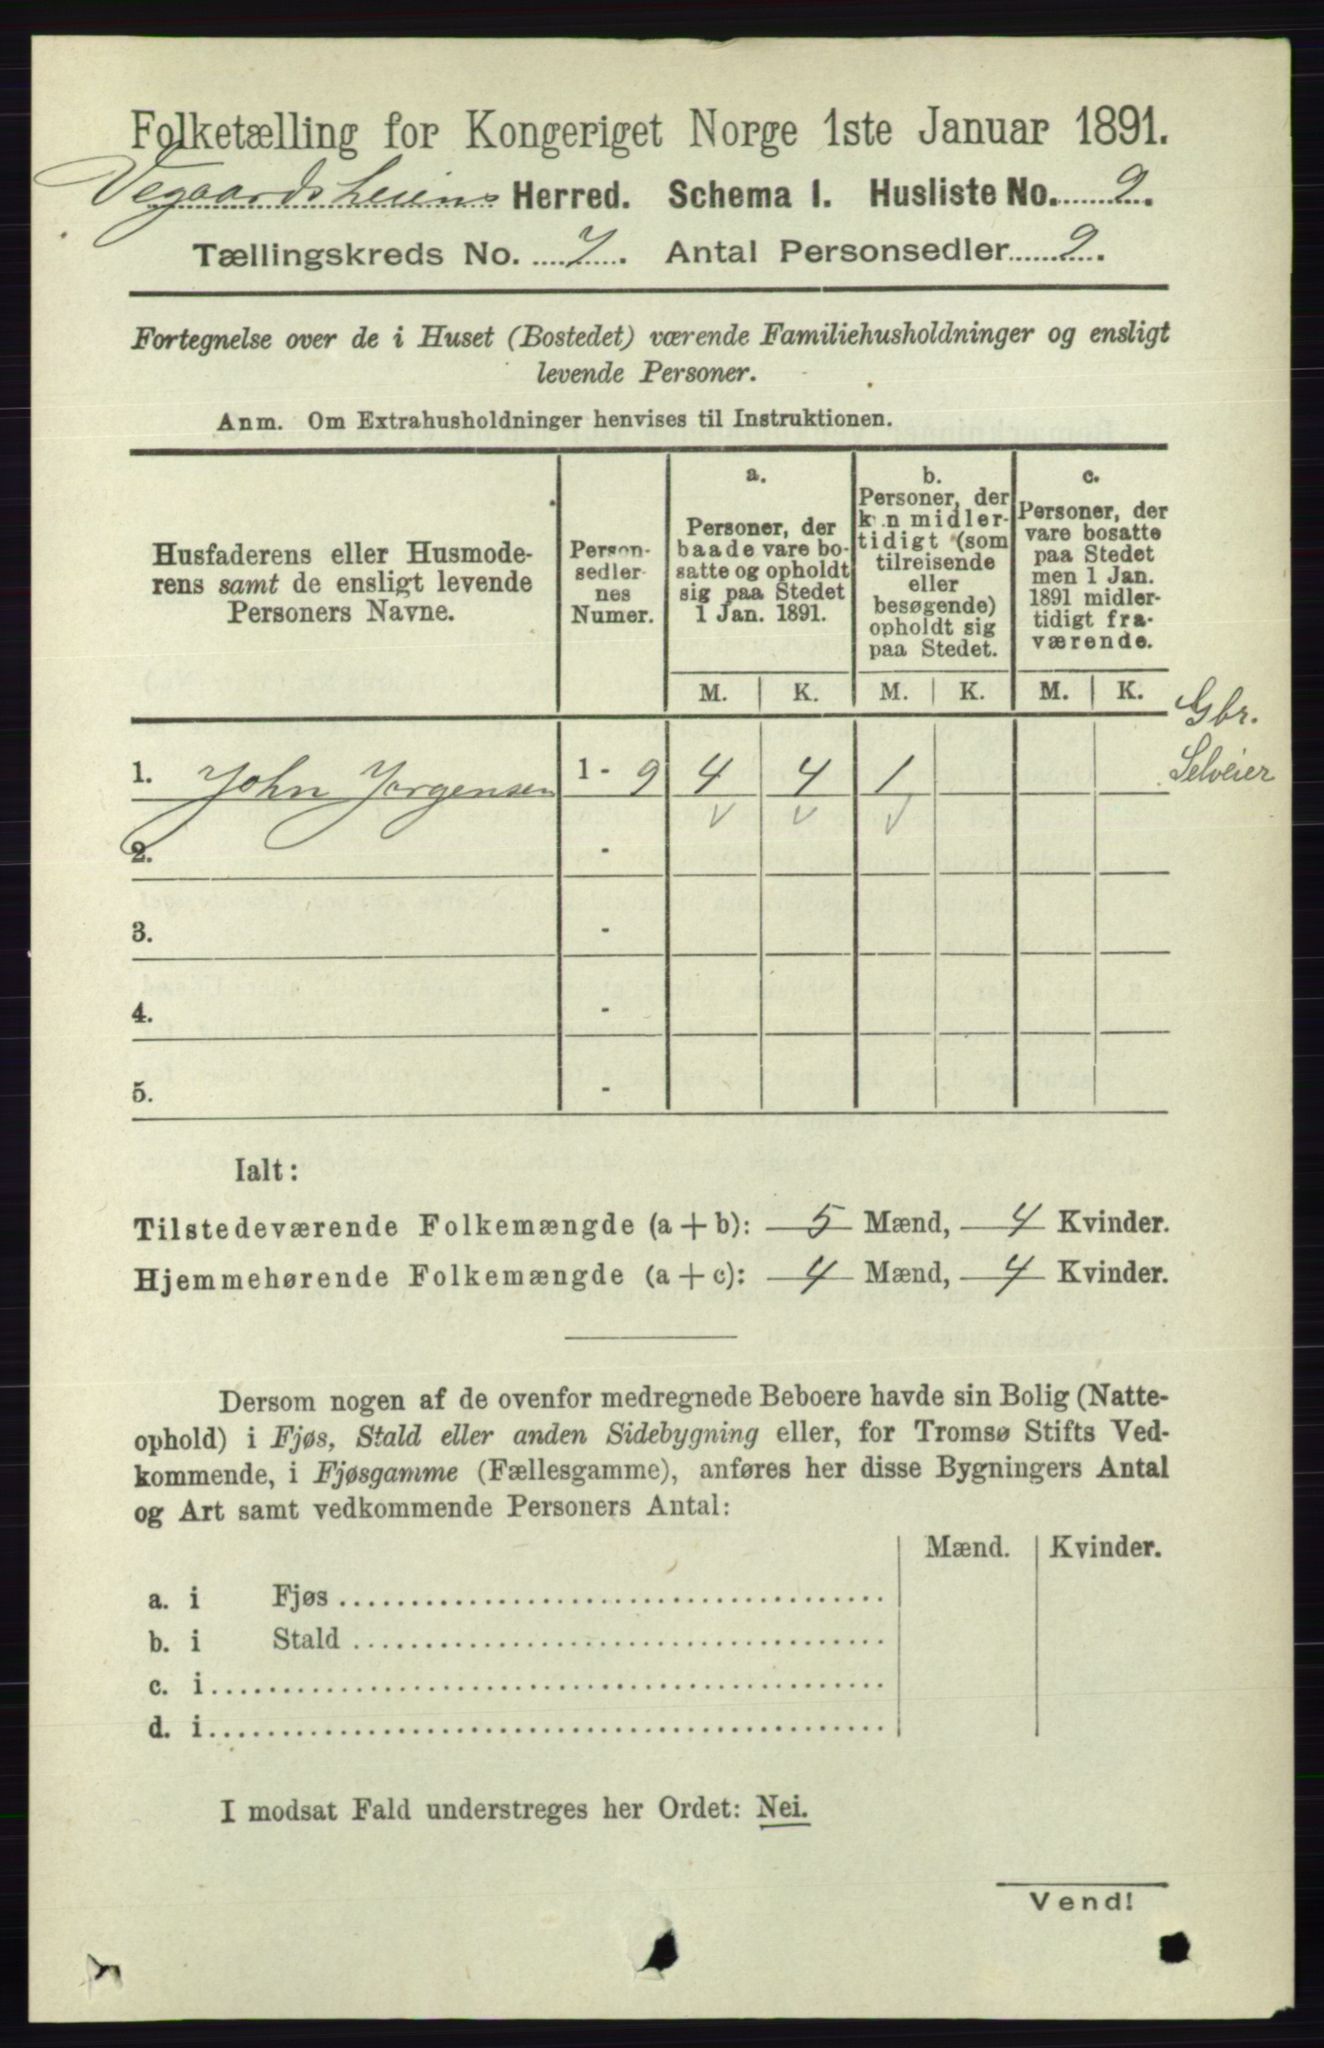 Folketælling for Kongeriget Norge 1ste Januar 1891.
Vegaardsheiens Herred. Schema I. Husliste No. 9.
Tællingskreds No. 7. Antal Personsedler 9.
Fortegnelse over de i Huset (Bostedet) værende Familiehusholdninger og ensligt
levende Personer.
Anm. Om Extrahusholdninger henvises til Instruktionen.
Husfaderens eller Husmode-
rens samt de ensligt levende
Personers Navne.
Person-
sedler-
nes
Numer.
a.
Personer, der
baade vare bo-
satte og opholdt
sig paa Stedet
1 Jan. 1891.
b.
Personer, der
kun midler-
tidigt (som
tilreisende
eller
besøgende)
opholdt sig
paa Stedet.
c.
Personer, der
vare bosatte
paa Stedet
men 1 Jan.
1891 midler-
tidigt fra-
værende.
M. K. M. K. M. K.
Gbr.
Selveier
1. John Jørgensen 1 - 9 4 4 1
2. -
3. -
4. -
5. -
Ialt:
Tilstedeværende Folkemængde (a + b): 5 Mænd, 4 Kvinder.
Hjemmehørende Folkemængde (a + c): 4 Mænd, 4 Kvinder.
Dersom nogen af de ovenfor medregnede Beboere havde sin Bolig (Natte-
ophold) i Fjøs, Stald eller anden Sidebygning eller, for Tromsø Stifts Ved-
kommende, i Fjøsgamme (Fællesgamme), anføres her disse Bygningers Antal
og Art samt vedkommende Personers Antal:
Mænd. Kvinder.
a. i Fjøs
b. i Stald
c. i
d. i
I modsat Fald understreges her Ordet: Nei.
Vend!